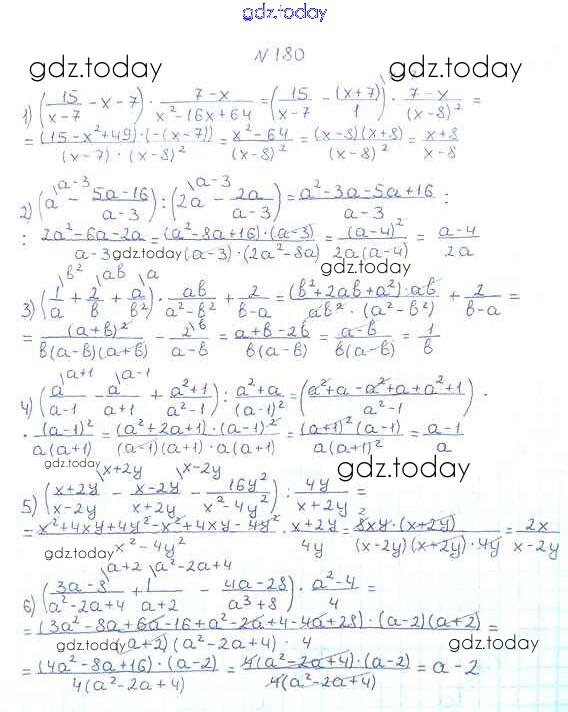 gdz.today
№180
gdz.today gdz.today
1) (15/(x-7) - x - 7) · (7-x)/(x²-16x+64) = (15/(x-7) - (x+7)/1) · (7-x)/(x-8)² =
= (15-x²+49)·(-(x-7))/((x-7)·(x-8)²) = (x²-64)/(x-8)² = (x-8)(x+8)/(x-8)² = (x+8)/(x-8)
2) (a\a-3 - (5a-16)/(a-3)) : (2a\a-3 - 2a/(a-3)) = (a²-3a-5a+16)/(a-3) :
: (2a²-6a-2a)/(a-3) = (a²-8a+16)·(a-3)/((a-3)·(2a²-8a)) = (a-4)²/(2a(a-4)) = (a-4)/(2a)
gdz.today
gdz.today
3) (1/a\в² + 2/в\aв + a/в²\a) · aв/(a²-в²) + 2/(в-a) = (в²+2aв+a²)·aв/(aв²·(a²-в²)) + 2/(в-a) =
= (a+в)²/(в(a-в)(a+в)) - 2\в/(a-в) = (a+в-2в)/(в(a-в)) = (a-в)/(в(a-в)) = 1/в
4) (a/(a-1)\a+1 - a/(a+1)\a-1 + (a²+1)/(a²-1)) : (a²+a)/(a-1)² = ((a²+a-a²+a+a²+1)/(a²-1)) ·
· (a-1)²/(a(a+1)) = (a²+2a+1)·(a-1)²/((a-1)(a+1)·a(a+1)) = (a+1)²(a-1)/(a(a+1)²) = (a-1)/a
gdz.today
5) ((x+2y)/(x-2y)\x+2y - (x-2y)/(x+2y)\x-2y - 16y²/(x²-4y²)) : 4y/(x+2y) =
= (x²+4xy+4y²-x²+4xy-4y²)/(x²-4y²) · (x+2y)/4y = 8xy·(x+2y)/((x-2y)(x+2y)·4y) = 2x/(x-2y)
gdz.today
6) ((3a-8)/(a²-2a+4)\a+2 + 1/(a+2)\a²-2a+4 - (4a-28)/(a³+8)) · (a²-4)/4 =
= (3a²-8a+6a-16+a²-2a+4-4a+28)·(a-2)(a+2)/((a+2)(a²-2a+4)·4) =
gdz.today gdz.today
= (4a²-8a+16)·(a-2)/(4(a²-2a+4)) = 4(a²-2a+4)·(a-2)/(4(a²-2a+4)) = a-2
gdz.today